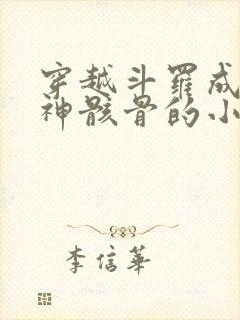 穿越斗罗成
神骸骨的小
李信华